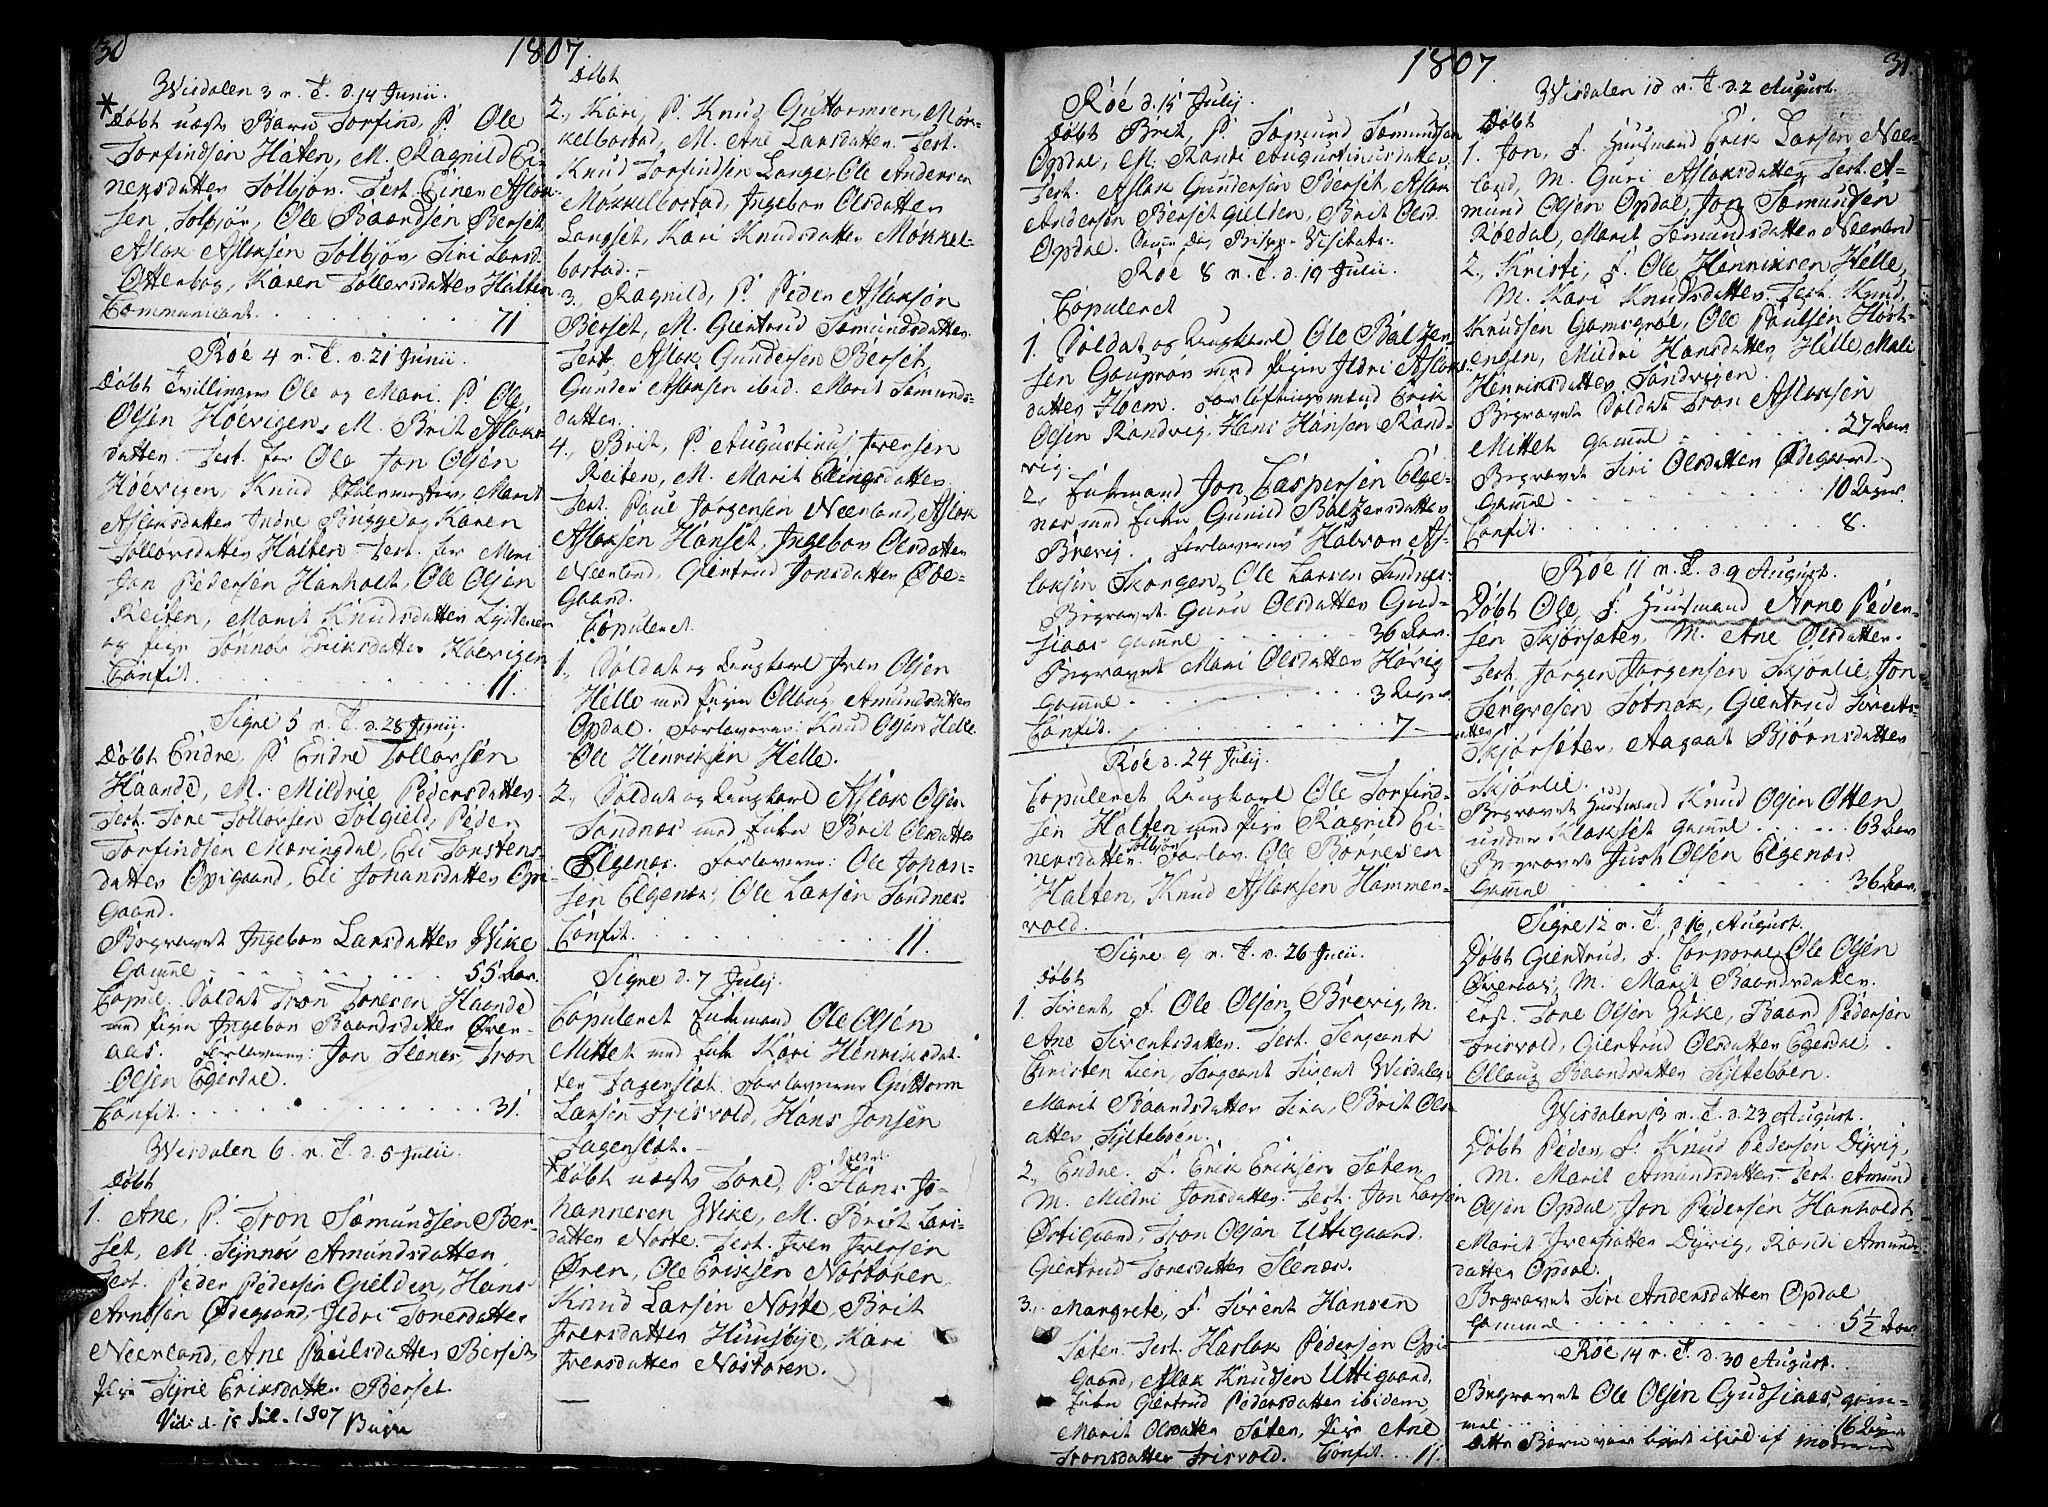 30
1807.
Wisdalen 3 n. T. d. 14 Junii.
* Døbt uægte Barn Torfind, P. Ole
Torfindsen Halten, M. Ragnild Ei-
nersdatter Solbjør. Test. Einer Aslak-
sen Solbjør, Ole Baardsen Berset,
Aslak Aslaksen Solbjør, Siri Larsd.
Otterbog, Karen Tollevsdatter Halten
Communicant. 71
Røe 4 n. T. d. 21 Junii.
Døbt Tvillinger Ole og Mari. P. Ole
Olsen Høevigen, M. Brit Aslaks-
datter. Test. for Ole Jon Olsen
Høevigen, Knud Skolemester, Marit
Aslaksdatter Indre Bugge og Karen
Tollovsdatter Halten Test. for Mari
Jon Pedersen Hanholt, Ole Olsen
Reiten, Marit Knudsdatter
og pige Sønnov Eriksdatter Høevigen
Confit. 11.
Signe 5 n. T. d. 28 Junii.
Døbt Endre, P. Endre Tollovsen
Haande, M. Mildrie Pedersdatter.
Test. Tore Tollovsen Solgield, Peder
Torfindsen Meringdal, Eli Torstens-
datter Opigaard, Eli Johansdatter Opi-
gaard.
Begravet Ingebor Larsdatter Wike
Gamle 55 Aar.
Copul. Soldat Tron Toresen Haande
med pige Ingebor Baardsdatter Øver-
aas. Forlovere: Jon Stenes, Tron
Olsen Egerdal.
Confit. 31.
Wisdalen 6. n. T. d. 5 Julii.
Døbt
1. Ane, P. Tron Sæmundsen Ber-
set, M. Synnøv Amundsdatter
Test. Peder Pedersen Gielden, Hans
Arntsen Ødegaard, Ildri Toresdatter
Neerland, Ane Paulsdatter Berset
pige Syrie Eriksdatter Berset.
Vidi d. 15 Jul. 1807 Bugge
Døbt
2., Kari, P. Knud Guttormsen, Møk-
kelbostad, M. Ane Larsdatter. Test.
Knud Torfindsen Langset, Ole Andersen
Møkkelbostad, Ingebor Olsdatter
Langset, Kari Knudsdatter Møkkel-
bostad.
3., Ragnild, P. Peder Aslaksøn
Berset, M. Giertrud Sæmundsdatter.
Test Aslak Gundersen Berset,
Gunder Aslaksen ibid. Marit Sæmunds-
datter.
4., Brit, P. Augustinus Iversen
Reiten, M. Marit Ellingsdatter.
Test. Paul Jørgensen Neerland, Aslak
Aslaksen Hanset, Ingebor Olsdatter
Neerland, Giertrud Jonsdatter Øde-
gaard.
Copuleret.
1., Soldat og Ungkarl Iver Olsen
Helle med pigen Ollaug Amundsdatter
Opdal. Forlovere: Knud Olsen Helle
Ole Henriksen Helle.
2., Soldat og Ungkarl Aslak Olsen
Sandnes med Enke Brit Olsdatter
Elgenes. Forlovere: Ole Johan-
sen Elgenes, Ole Larsen Sandnes.
Confit. 11.
Signe d. 7 Julij.
Copuleret Enkemand Ole Olsen
Mittet med Enke Kari Henriksdat-
ter Fagerslet. Forlovere Guttorm
Larsen Frisvold, Hans Jonsen
Fagerslet.
* Døbt uægte Tore, P. Hans Jo-
hannesen Wike, M. Brit Lars-
datter Noste. Test. Iver Iversen
Øren, Ole Eriksen Nostøren
Knud Larsen Noste, Brit
Iversdatter Huusbye, Kari
Iversdatter Nostøren.
1807.
31.
Røe d. 15 Julij.
Døbt Brit, P. Sæmund Sæmundsen
Opdal, M. Randi Augustinusdatter.
Test. Aslak Gundersen Berset, Aslak
Andersen Berset Gielden, Brit Olsd.
Opdal. Samme Dag Bispe-Visitats.
Røe 8 n. T. d. 19 Julii.
Copuleret
1. Soldat og Ungkarl Ole Balzer-
sen Gouprør med pigen Ildri Aslaks-
datter Hoem. Forløftningsmænd Erik
Olsen Randvig, Hans Hansen Rand-
vig.
2., Enkemand Jon Caspersen Elge-
nes med Enke Gunild Balzersdatter
Brevig. Forlovere Halvor As-
laksen Skorgen, Ole Larsen Sandnes.
Begravet Guru Olsdatter Gud-
siaas gamle 36 Aar.
Begravet Mari Olsdatter Høvig
Gamle. 3 Dager.
Confit. 7
Røe d. 24 Julij.
Copuleret Ungkarl Ole Torfind-
sen Halten med pige Ragnild Ei-
nersdatter Solbjør. Forlov. Ole Bornesen
Halten, Knud Aslaksen Hammer-
vold.
Signe 9 n. T. d. 26 Julii.
Døbt
1. Sivert, F. Ole Olsen Brevig, M.
Ane Sivertsdatter. Test. Sergeant
Christen Lien, Sergeant Sivert Wisdalen
Marit Baardsdatter Sira, Brit Ols-
datter Sylteboen.
2., Endre. F. Erik Eriksen Sæter
M. Mildri Jonsdatter. Test. Jon Larsen
Østigaard, Tron Olsen Uttigaard.
Giertrud Toresdatter Stenes.
3., Margrete, F. Sivert Hansen
Sæter. Test. Harlak Pedersen Opi-
gaard, Aslak Knudsen Uttigaard,
Enke Giertrud Pedersdatter ibidem,
Marit Olsdatter Sæter, pige Ane
Tronsdatter Frisvold. Confit. 11.
Wisdalen 10 n. T. d. 2 August.
Døbt
1. Jon, F. Huusmand Erik Larsen Neer-
land, M. Guri Aslaksdatter Test. A-
mund Olsen Opdal, Jon Sæmundsen
Røedal, Marit Sæmundsdatter Neerland
2., Kristi, F. Ole Henriksen Helle,
M. Kari Knudsdatter. Test. Knud
Knudsen Gamsgrøe, Ole Paulsen Horst-
engen, Mildri Hansdatter Helle, Mali
Henriksdatter Sandvigen.
Begravet Soldat Tron Aslaksen
Mittet gamle 27 Aar.
Begravet Siri Olsdatter Ødegaard.
Gamle 10 Dager.
Confit. 8.
Røe 11 n. T. d. 9 August.
Døbt Ole, F. Huusmand Arne Peder-
sen Skjørsæter, M. Ane Olsdatter.
Test. Jørgen Jørgensen Skjørlie, Jon
Sengresen Sotnak, Giertrud Siverts-
datter Skjørseter, Aagaat Bjørnsdatter
Skjørlie.
Begravet Huusmand Knud Olsen Otter
under Klakset gamle 63 Aar
Begravet Just Olsen Elgenes.
Gamle 36 Aar.
Signe 12 n. T. d. 16 August.
Døbt Giertrud, F. Corporal Ole Olsen
Øveraas, M. Marit Baardsdatter.
Test. Tore Olsen Wike, Baard Pedersen
Frisvold, Giertrud Olsdatter Egerdal,
Ollaug Baardsdatter Sylteboen.
Wisdalen 13 n. T. d. 23 August.
Døbt Peder, F. Knud Pedersen Dyrvig,
M. Marit Amundsdatter. Test. Amund
Olsen Opdal, Jon Pedersen Hanholdt,
Marit Iversdatter Dyrvig, Randi Amunds-
datter Opdal.
Begravet Siri Andersdatter Opdal
Gamle 5½ Aar
Røe 14 n. T. d. 30 August.
Begravet Ole Olsen Gudsiaas, gam-
mel 16 Dager
Dette Barn var ihjel af Moderen